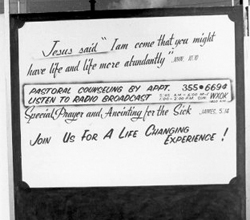 Jesus said "I am come that you might
have life and life more abundantly" JOHN, 10:10
PASTORAL COUNSELING BY APPT. 355•6694
LISTEN TO RADIO BROADCAST WXOK
Special Prayer and Anointing for the Sick JAMES, 5:14
JOIN US FOR A LIFE CHANGING
EXPERIENCE!